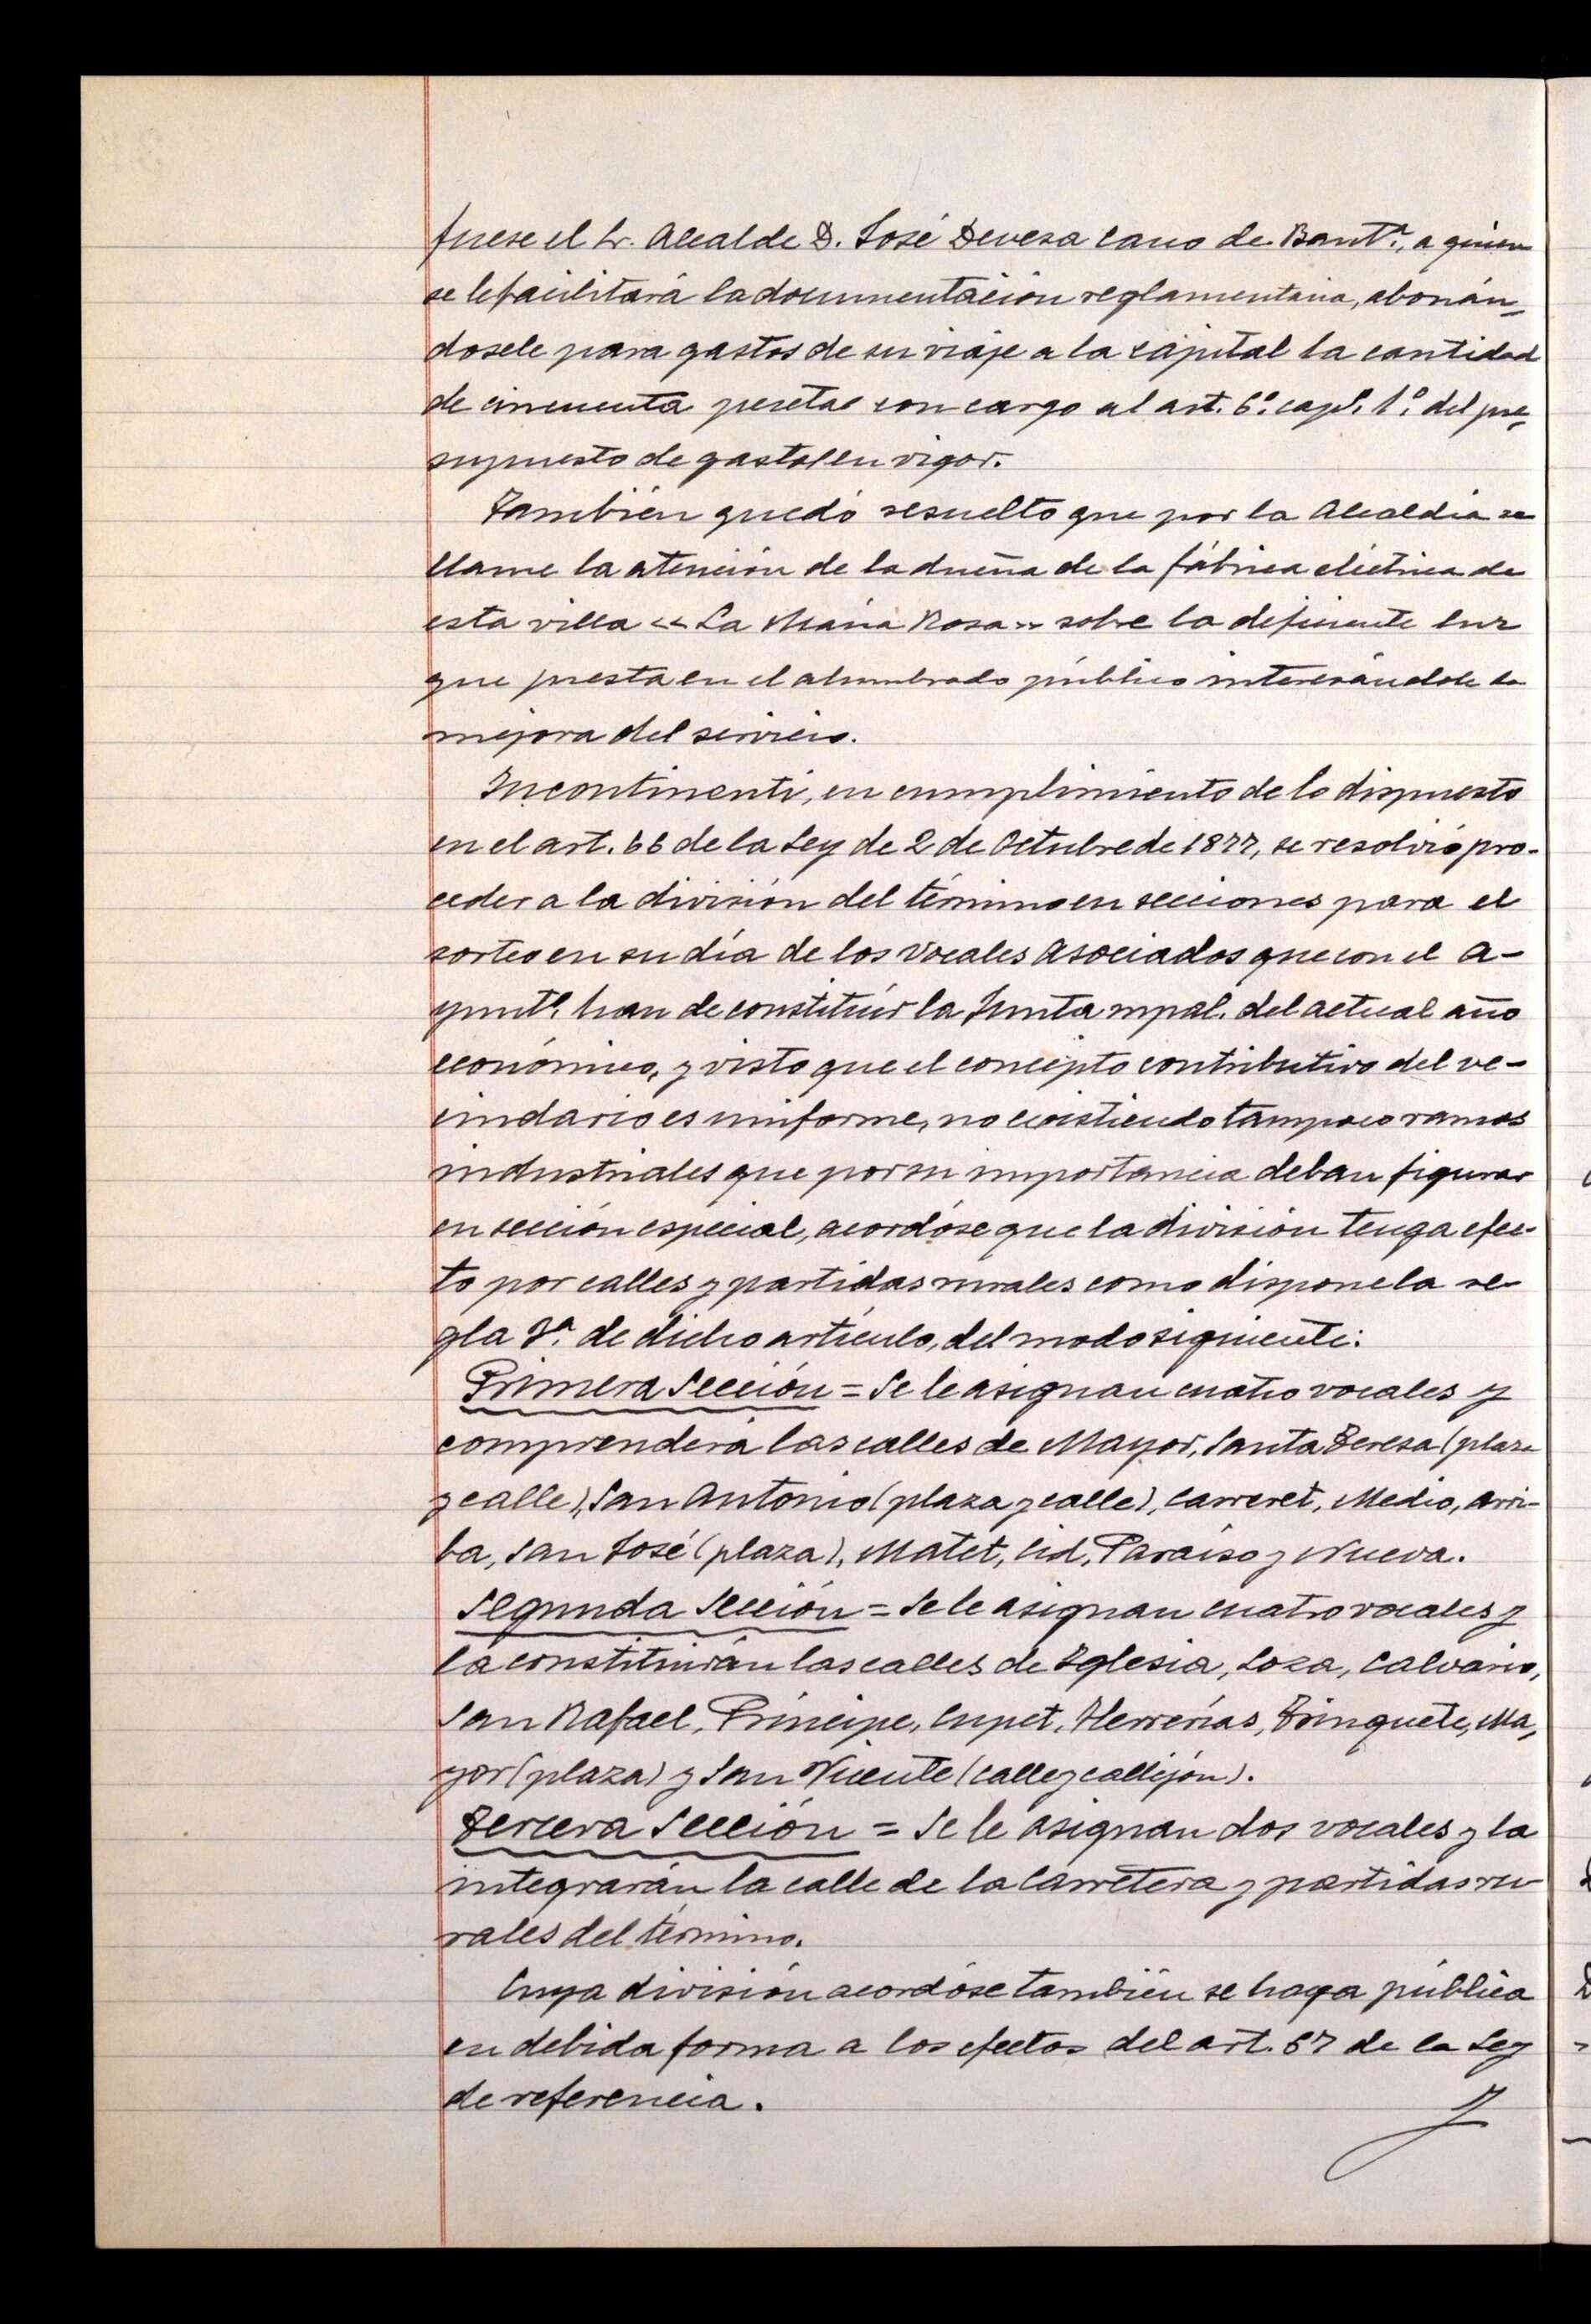 fuese el Sr. Alcalde D. José Devesa Cano de Bautª, a quien
se le facilitará la documentación reglamentaria, abonán-
dosele para gastos de su viaje a la capital la cantidad
de cincuenta pesetas con cargo al art. 6º. capº. 1º. del pre-
supuesto de gastos en vigor.
También quedó resuelto que por la Alcaldía se
llame la atención de la dueña de la fábrica eléctrica de
esta villa «La María Rosa» sobre la deficiente luz
que presta en el alumbrado público interesándole la
mejora del servicio.
Incontinenti, en cumplimiento de lo dispuesto
en el art. 66 de la Ley de 2 de Octubre de 1877, se resolvió pro-
ceder a la división del término en secciones para el
sorteo en su día de los Vocales Asociados que con el A-
yuntº. han de constituír la Junta mpal. del actual año
económico, y visto que el concepto contributivo del ve-
cindario es uniforme, no existiendo tampoco ramos
industriales que por su importancia deban figurar
en sección especial, acordóse que la división tenga efec-
to por calles y partidas rurales como dispone la re-
gla 3ª. de dicho artículo, del modo siguiente:
Primera Sección = Se le asignan cuatro vocales y
comprenderá las calles de Mayor, Santa Teresa (plaza
y calle), San Antonio (plaza y calle), Carreret, Medio, Arri-
ba, San José (plaza), Matet, Cid, Paraíso y Nueva.
Segunda Sección = Se le asignan cuatro vocales y
la constituirán las calles de Iglesia, Loza, Calvario,
San Rafael, Príncipe, Cupet, Herrerías, Trinquete, Ma-
yor (plaza) y San Vicente (calle y callejón).
Tercera Sección = Se le asignan dos vocales y la
integrarán la calle de la Carretera y partidas ru-
rales del término.
Cuya división acordóse también se haga pública
en debida forma a los efectos del art. 67 de la Ley
de referencia.